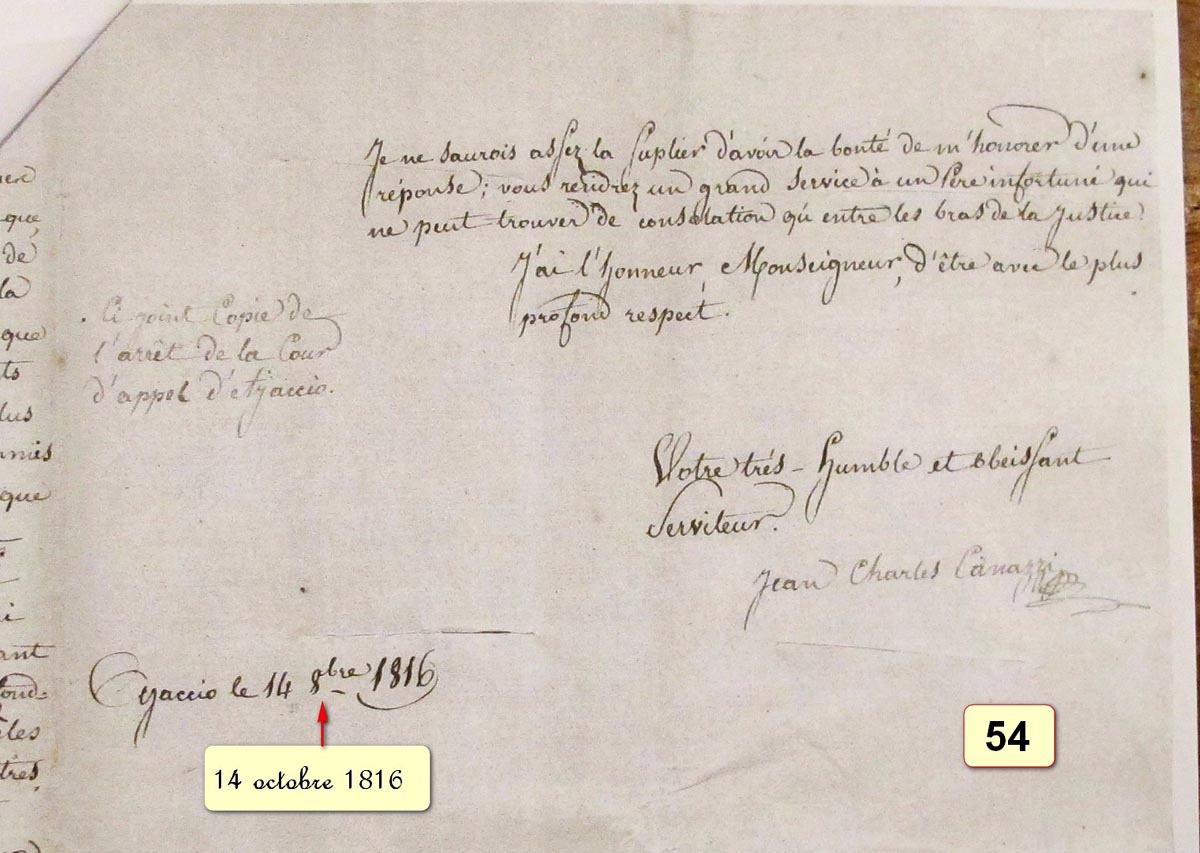 Je ne saurois assez la suplier d'avoir la bonté de m'honorer d'une
réponse; vous rendrez un grand service à un Père infortuné qui
ne peut trouver de consolation qu'entre les bras de la Justice.
J'ai l'honneur Monseigneur, d'être avec le plus
profond respect.
Ci joint Copie de
l'arrêt de la Cour
d'appel d'Ajaccio.
Votre trés-humble et obeissant
Serviteur.
Jean Charles Canazzi
Ajaccio le 14 8bre 1816
14 octobre 1816
54
que
de
la
que
ts
lus
que
ant
tres